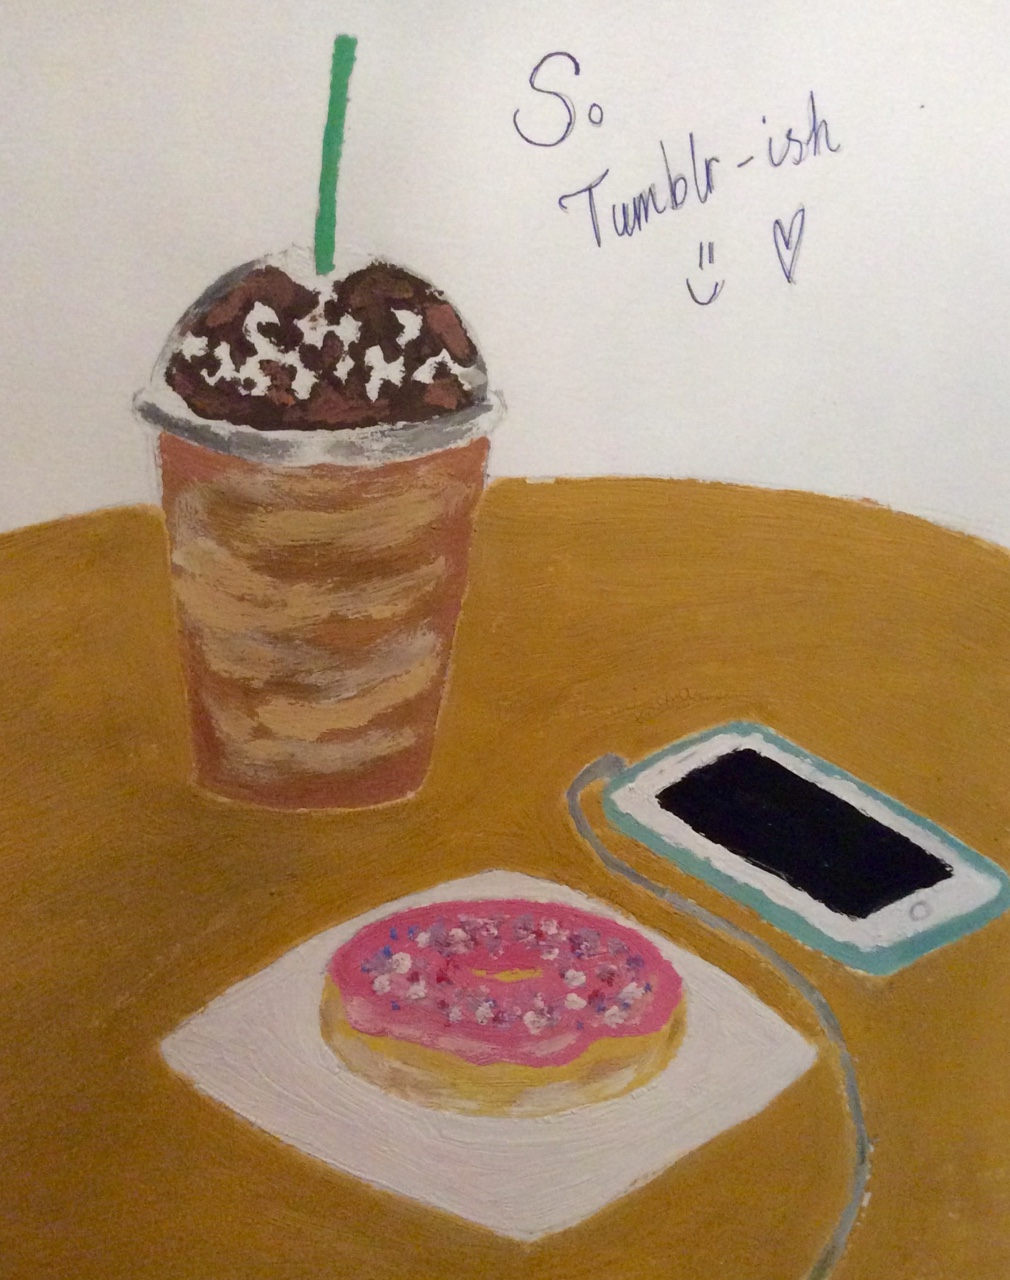 So
Tumblr-ish